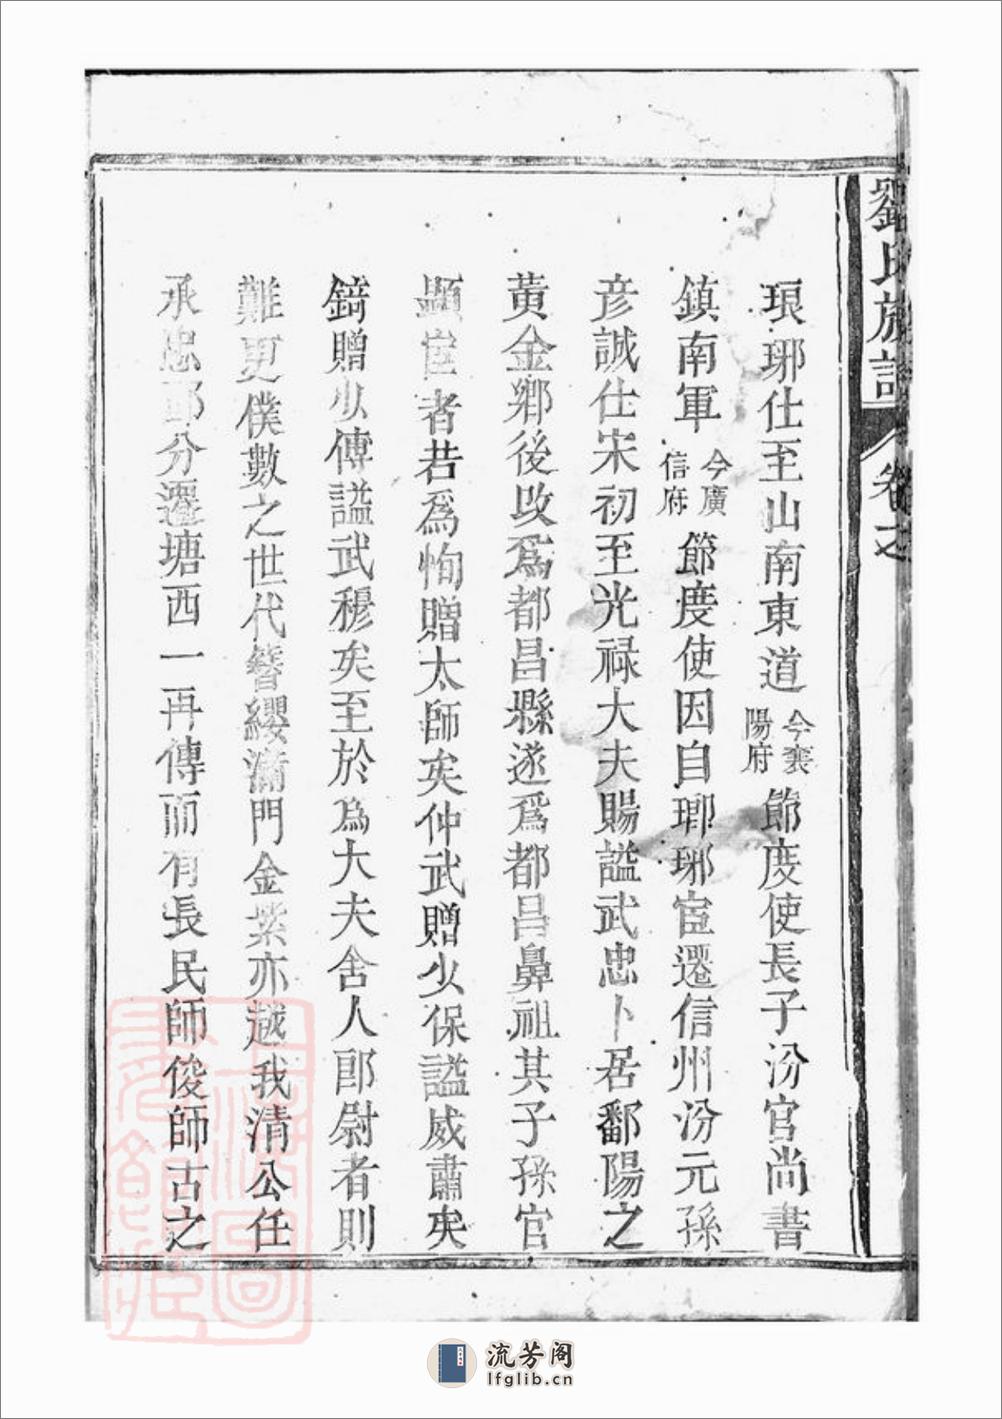 劉氏族譜 卷之
琅琊仕至山南東道今襄陽府節度使長子汾官尚書
鎮南軍今廣信府節度使因自瑯琊宦遷信州汾元孫
彦誠仕宋初至光禄大夫賜謚武忠卜居鄱陽之
黃金鄉後改爲都昌縣遂爲都昌鼻祖其子孫官
顯宦者若爲恂贈太師矣仲武贈少保謚威肅矣
錡贈少傅謚武穆矣至於為大夫舍人郎尉者則
難更僕數之世代簪纓滿門金紫亦越我清公任
承忠郎分遷塘西一再傳而有長民師俊師古之
流芳阁
lfglib.cn